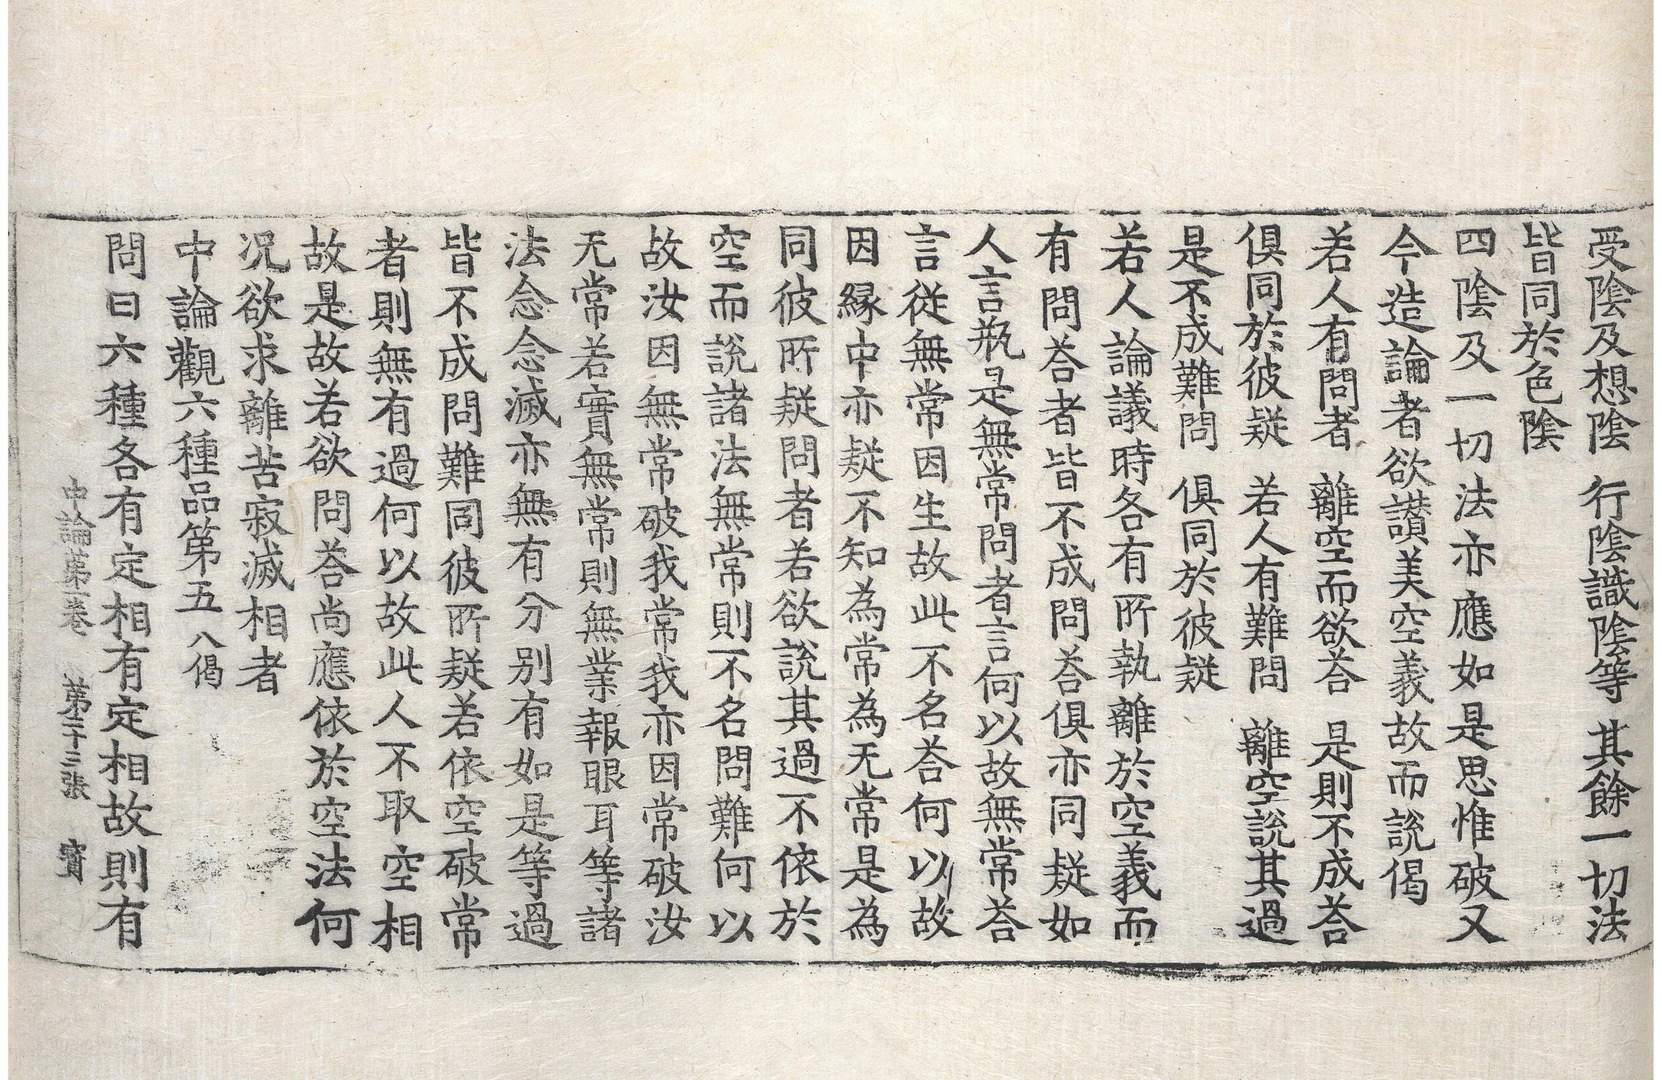 受陰及想陰 行陰識陰等 其餘一切法
皆同於色陰
四陰及一切法亦應如是思惟破又
今造論者欲讃美空義故而說偈
若人有問者 離空而欲荅 是則不成荅
俱同於彼疑 若人有難問 離空說其過
是不成難問 俱同於彼疑
若人論議時各有所執離於空義而
有問荅者皆不成問荅俱亦同疑如
人言瓶是無常問者言何以故無常荅
言従無常因生故此不名荅何以故
因縁中亦疑不知為常為无常是為
同彼所疑問者若欲說其過不依於
空而說諸法無常則不名問難何以
故汝因無常破我常我亦因常破汝
无常若實無常則無業報眼耳等諸
法念念滅亦無有分別有如是等過
皆不成問難同彼所疑若依空破常
者則無有過何以故此人不取空相
故是故若欲問荅尚應依於空法何
况欲求離苦寂滅相者
中論觀六種品第五 八偈
問曰六種各有定相有定相故則有
中論第一卷 第二十三張 賓